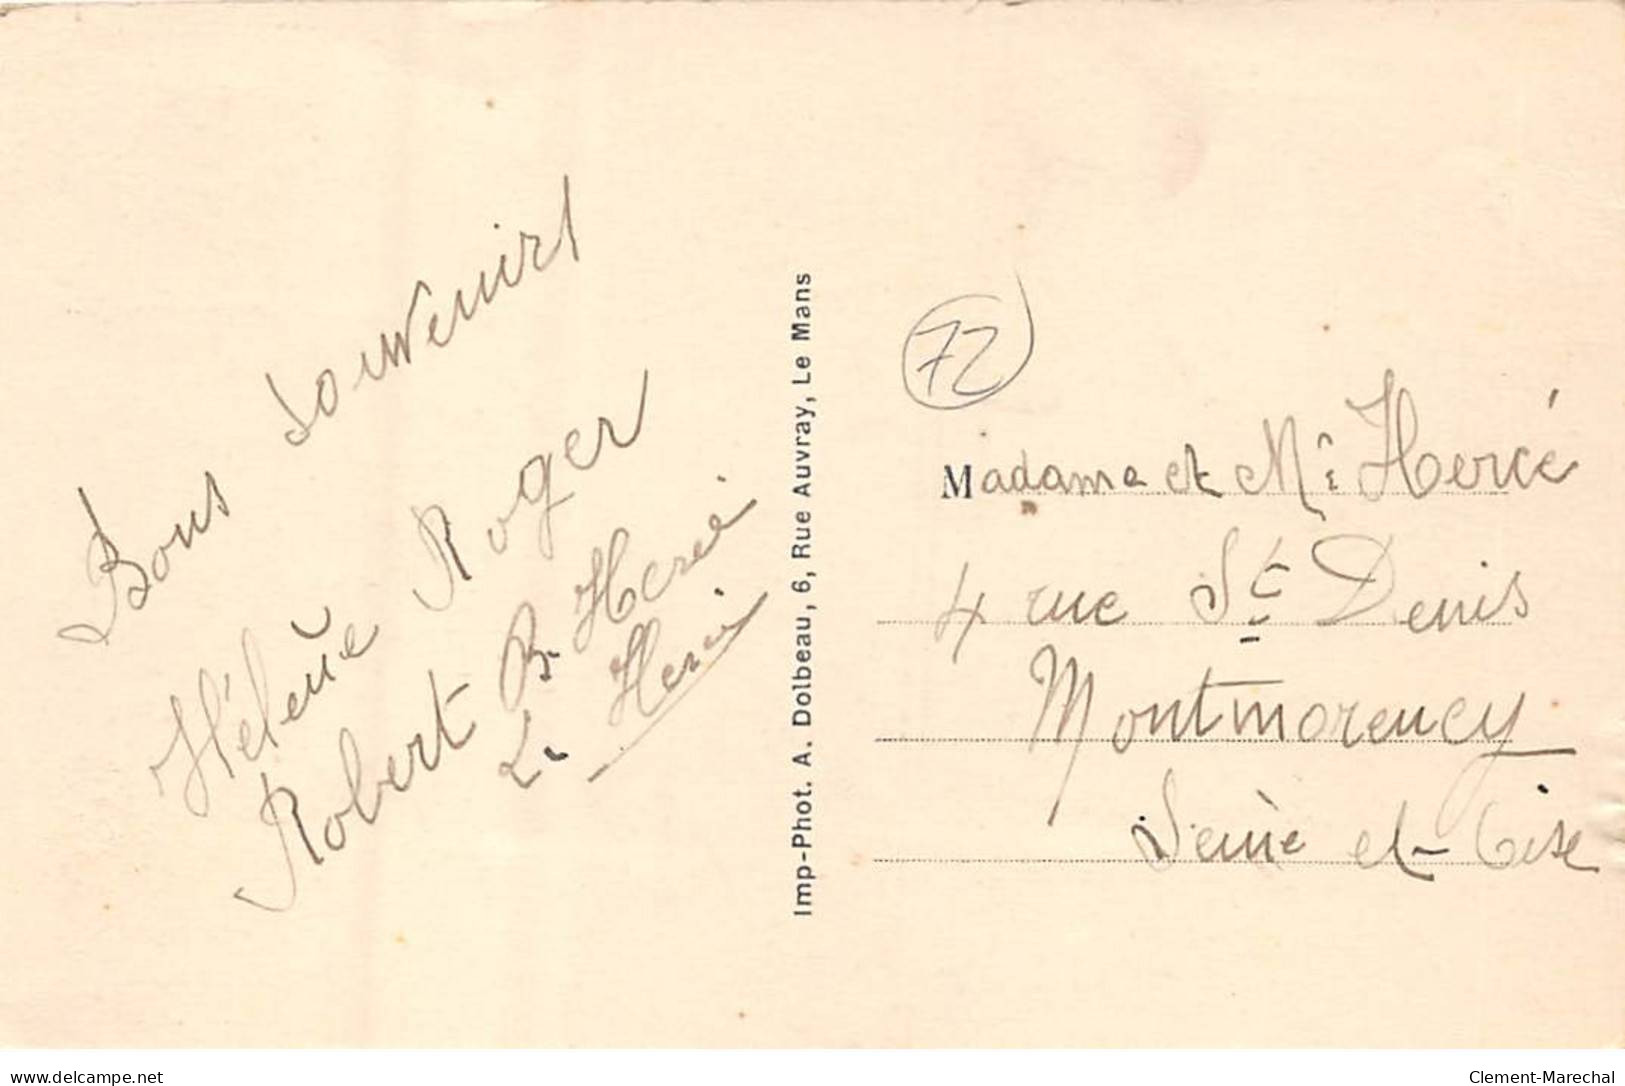 Bons souvenirs
Hélène Roger
Robert B. Hercé
L. Hercé
Imp-Phot. A. Dolbeau, 6, Rue Auvray, Le Mans
72
Madame et Mr Hercé
4 rue St Denis
Montmorency
Seine et Oise
www.delcampe.net
Clement-Marechal